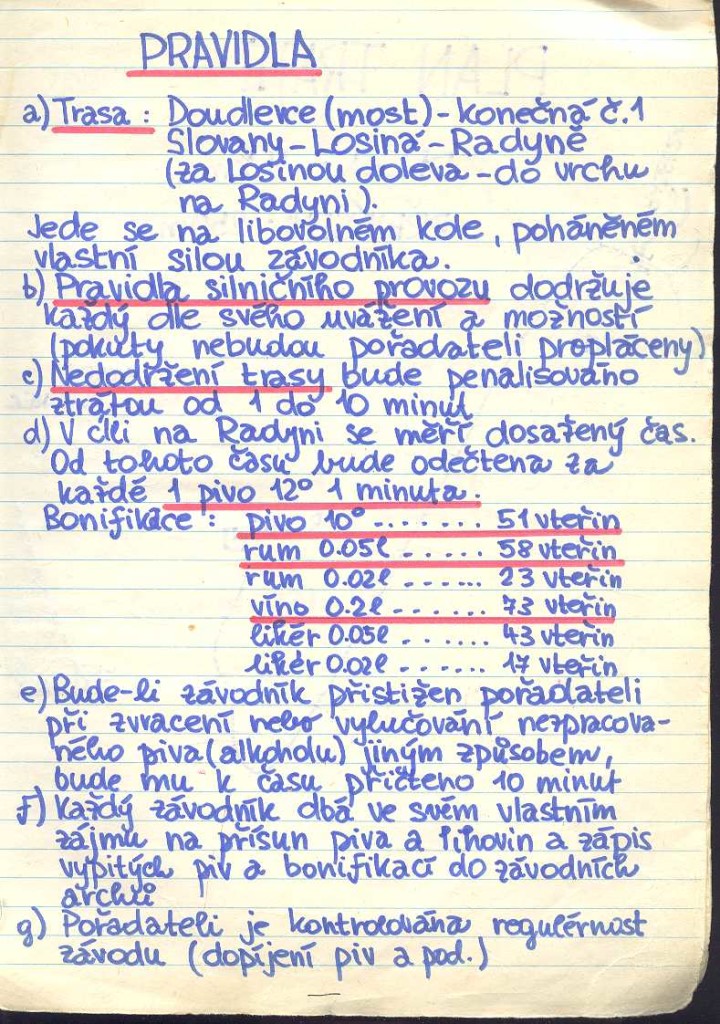 PRAVIDLA
a) Trasa : Doudlevce (most) - konečná č.1
Slovany - Losiná - Radyně
(za Losinou doleva - do vrchu
na Radyni).
Jede se na libovolném kole, poháněném
vlastní silou závodníka.
b) Pravidla silničního provozu dodržuje
každý dle svého uvážení a možností
(pokuty nebudou pořadateli propláceny)
c) Nedodržení trasy bude penalisováno
ztrátou od 1 do 10 minut
d) V cíli na Radyni se měří dosažený čas.
Od tohoto času bude odečtena za
každé 1 pivo 12° 1 minuta.
Bonifikace : pivo 10° ....... 51 vteřin
rum 0.05l ...... 58 vteřin
rum 0.02l ...... 23 vteřin
víno 0.2l ....... 73 vteřin
likér 0.05l ...... 43 vteřin
likér 0.02l ...... 17 vteřin
e) Bude-li závodník přistižen pořadateli
při zvracení nebo vylučování nezpracova-
ného piva (alkoholu) jiným způsobem,
bude mu k času přičteno 10 minut
f) Každý závodník dbá ve svém vlastním
zájmu na přísun piva a lihovin a zápis
vypitých piv a bonifikací do závodních
archů
g) Pořadateli je kontrolována regulérnost
závodu (dopíjení piv a pod.)